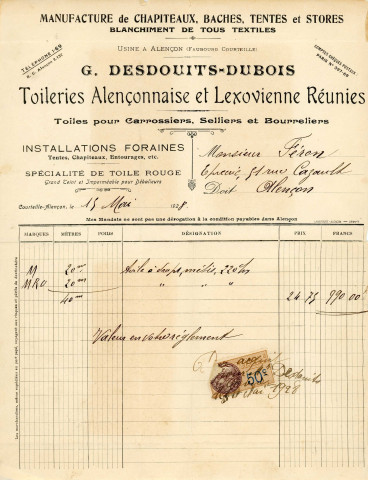 MANUFACTURE de CHAPITEAUX, BACHES, TENTES et STORES
BLANCHIMENT DE TOUS TEXTILES
USINE A ALENÇON (FAUBOURG COURTEILLE)
TÉLÉPHONE 1.69
COMPTES CHÈQUES POSTAUX
G. DESDOUITS-DUBOIS
Toileries Alençonnaise et Lexovienne Réunies
Toiles pour Carrossiers, Selliers et Bourreliers
INSTALLATIONS FORAINES
Tentes, Chapiteaux, Entourages, etc.
SPÉCIALITÉ DE TOILE ROUGE
Grand Teint et Imperméable pour Débaleurs
Monsieur Féron
Epicerie, 51 rue Cazault
Doit Alençon
Courteille-Alençon, le 15 Mai 1928
Nos Mandats ne sont pas une dérogation à la condition payables dans Alençon
MARQUES MÈTRES POIDS DÉSIGNATION PRIX FRANCS
20 Toile à draps, métis, 220
20 " " "
40 24 75 990.00
Valeur en votre règlement
50c
Desdouits
Mai 1928